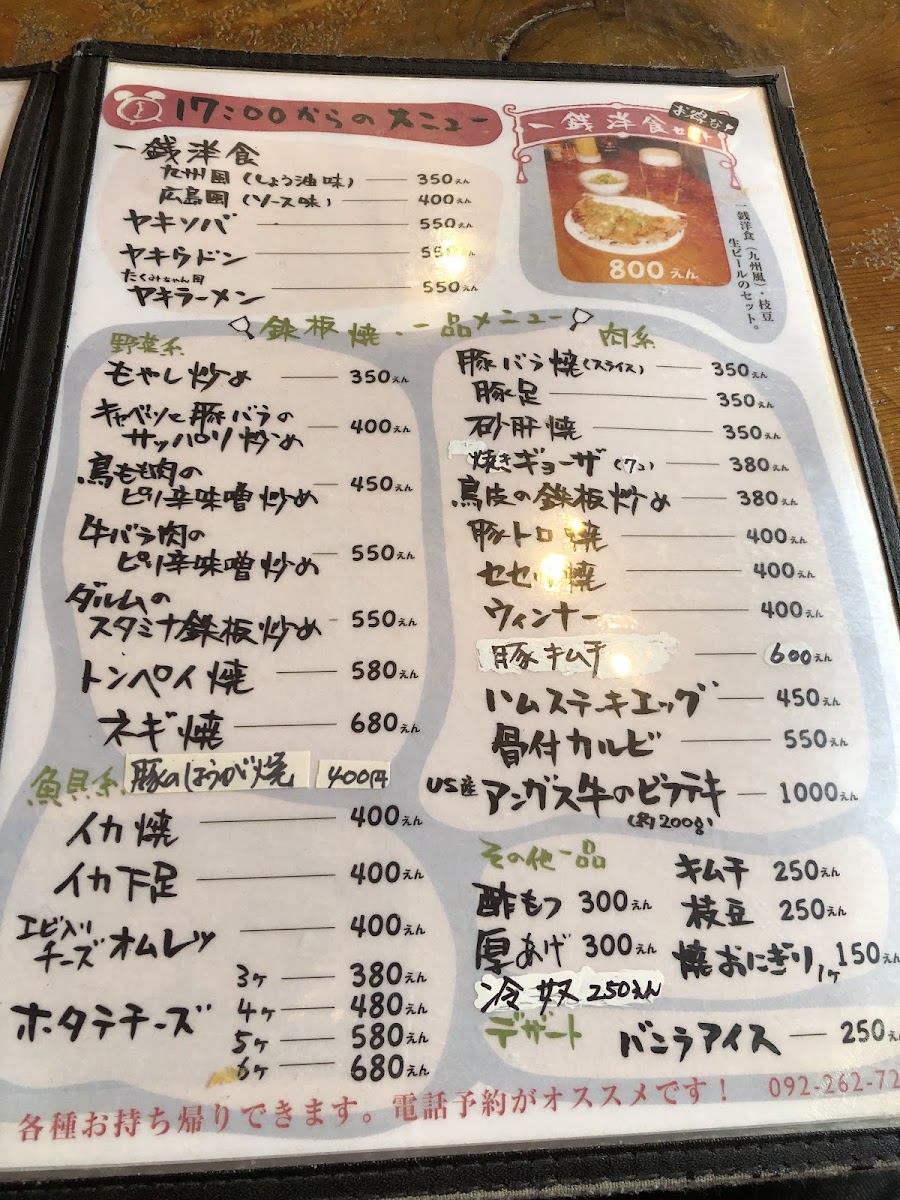 17:00からのメニュー
一銭洋食
九州風(しょう油味) 350えん
広島風(ソース味) 400えん
ヤキソバ 550えん
ヤキウドン 550えん
たくみちゃん風
ヤキラーメン 550えん
お得な!
一銭洋食セット
800えん
一銭洋食(九州風)・枝豆
生ビールのセット。
鉄板焼・一品メニュー
野菜系
もやし炒め 350えん
キャベツと豚バラの
サッパリ炒め 400えん
鳥もも肉の
ピリ辛味噌炒め 450えん
牛バラ肉の
ピリ辛味噌炒め 550えん
ダルムの
スタミナ鉄板炒め 550えん
トンペイ焼 580えん
ネギ焼 680えん
豚のしょうが焼 400円
魚貝系
イカ焼 400えん
イカ下足 400えん
エビ入り
チーズオムレツ 400えん
ホタテチーズ
3ヶ 380えん
4ヶ 480えん
5ヶ 580えん
6ヶ 680えん
肉系
豚バラ焼(スライス) 350えん
豚足 350えん
砂肝焼 350えん
焼きギョーザ(7コ) 380えん
鳥皮の鉄板炒め 380えん
豚トロ焼 400えん
セセリ焼 400えん
ウィンナー 400えん
豚キムチ 600えん
ハムステーキエッグ 450えん
骨付カルビ 550えん
US産アンガス牛のビフテキ 1000えん
(約200g)
その他一品
酢もつ 300えん
厚あげ 300えん
冷奴 250えん
キムチ 250えん
枝豆 250えん
焼おにぎり 1ヶ 150えん
デザート
バニラアイス 250え
各種お持ち帰りできます。電話予約がオススメです! 092-262-72